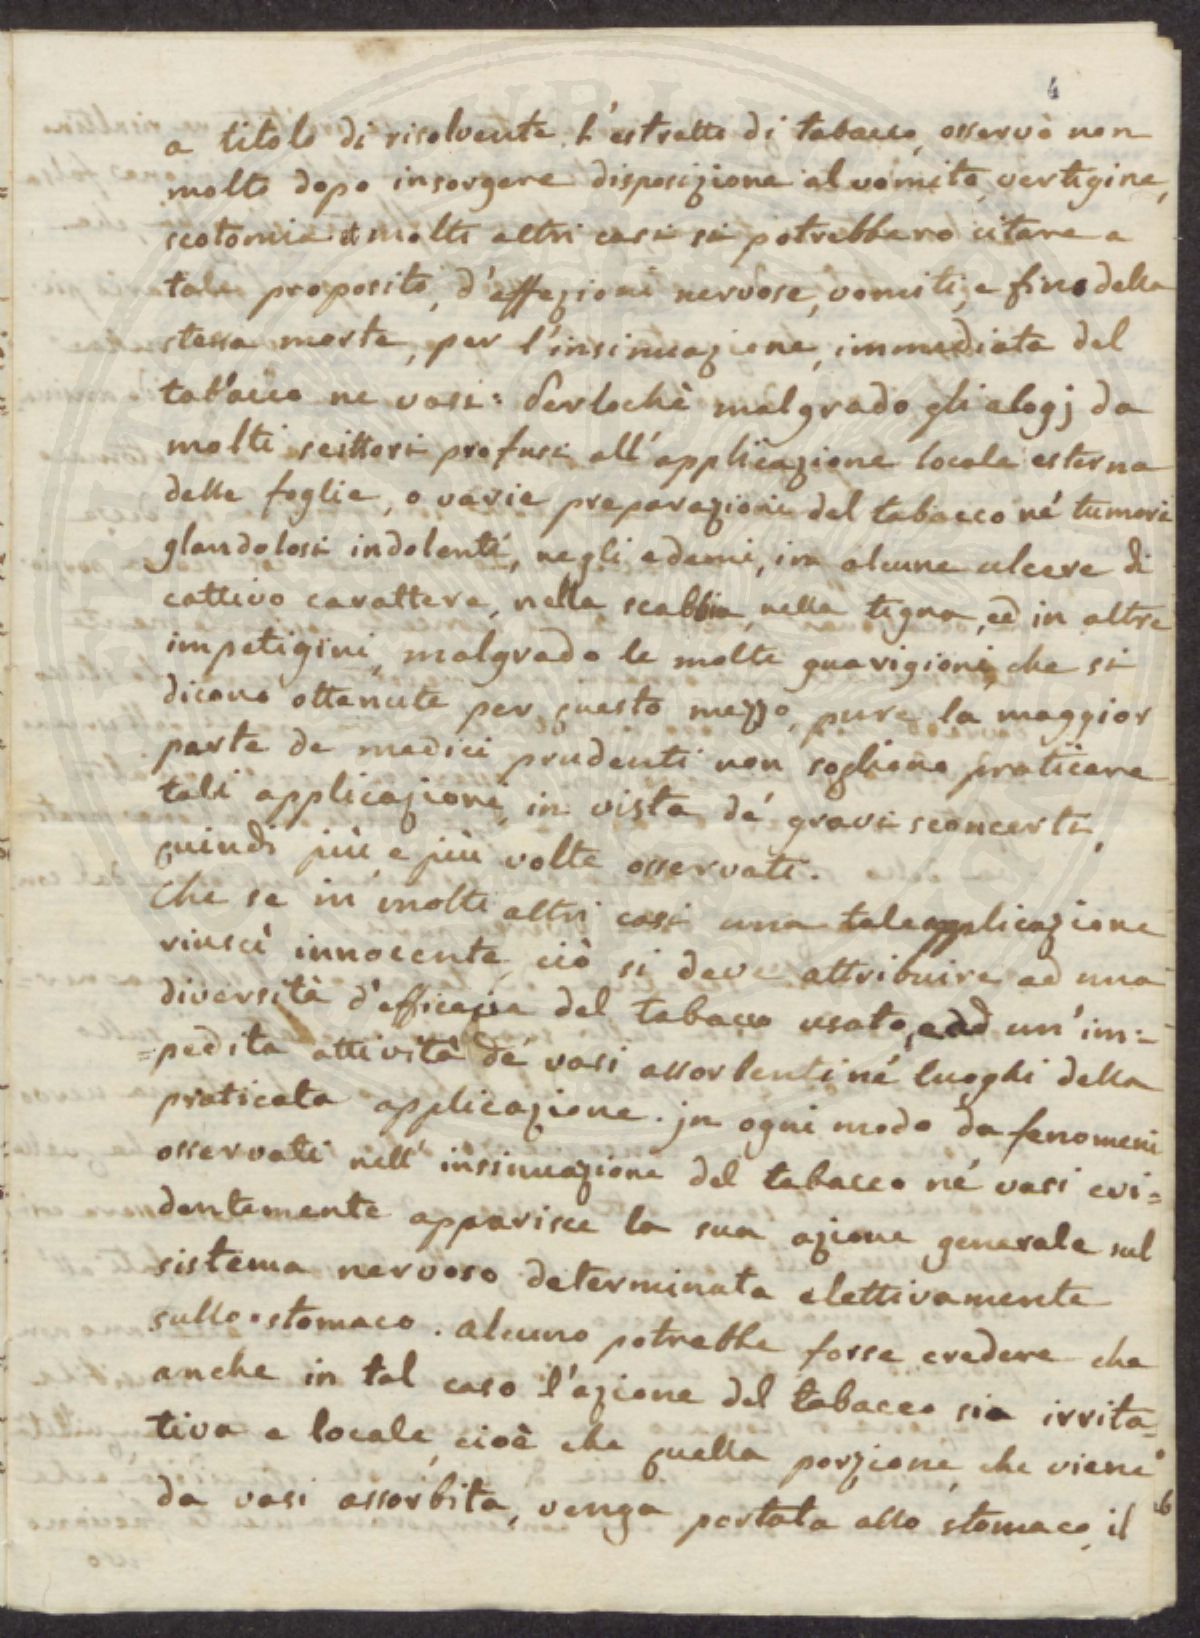 4
a titolo di risolvente l'estratto di tabacco, osservò non
molto dopo insorgere disposizione al vomito, vertigine,
scotomia et molti altri casi si potrebbero citare a
tale proposito, d'affezioni nervose, vomiti, e fino della
stessa morte, per l'insinuazione, immediata del
tabacco ne vasi: Perlochè malgrado gli alogj da
molti scittori profusi all'applicazione locale esterna
delle foglie, o varie preparazioni del tabacco né tumori
glandolosi indolenti, negli edemi, in alcune ulcere di
cattivo carattere, nella scabbia, nella tigna, ed in altre
impetigini, malgrado le molte guarigioni, che si
dicono ottenute per questo mezzo, pure la maggior
parte de medici prudenti non sogliono praticare
tali applicazioni, in vista dé gravi sconcerti,
quindi più e più volte osservati.
Che se in molti altri casi una tale applicazione
riuscì innocente, ciò si deve attribuire ad una
diversità d'efficazia del tabacco usato, e ad un'im=
=pedita attività dé vasi assorbenti né luoghi della
praticata applicazione. jn ogni modo da fenomeni
osservati nell'insinuazione del tabacco né vasi evi=
dentemente apparisce la sua azione generale sul
sistema nervoso determinata elettivamente
sullo stomaco. alcuno potrebbe forse credere che
anche in tal caso l'azione del tabacco sia irrita=
tiva e locale, cioè che quella porzione, che viene
da vasi assorbita, venga portata allo stomaco, il